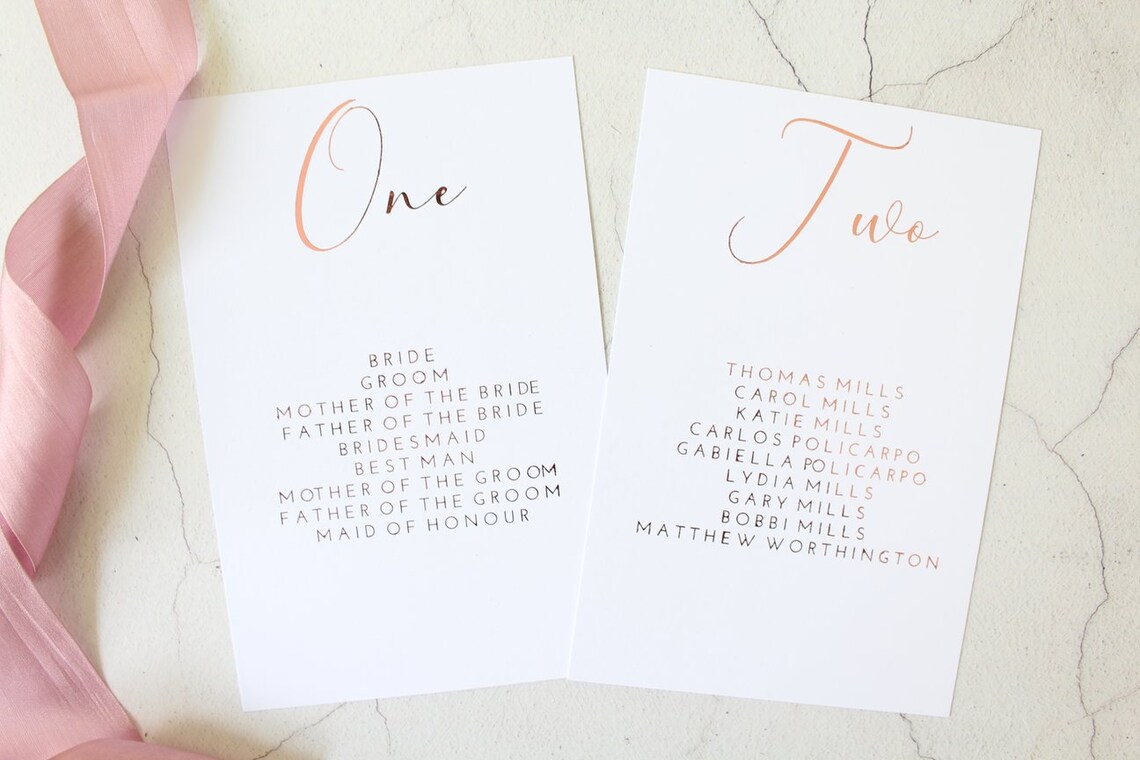 One
BRIDE
GROOM
MOTHER OF THE BRIDE
FATHER OF THE BRIDE
BRIDESMAID
BEST MAN
MOTHER OF THE GROOM
FATHER OF THE GROOM
MAID OF HONOUR
Two
THOMAS MILLS
CAROL MILLS
KATIE MILLS
CARLOS POLICARPO
GABIELLA POLICARPO
LYDIA MILLS
GARY MILLS
BOBBI MILLS
MATTHEW WORTHINGTON